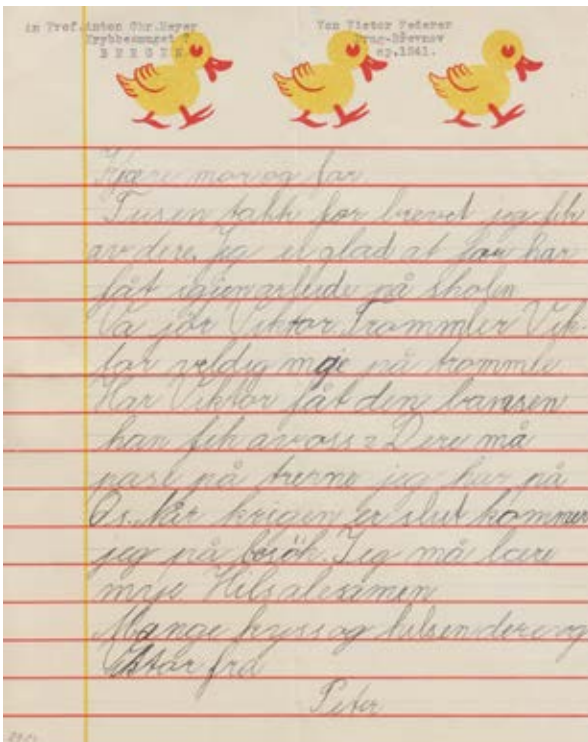 in Prof. Anton Chr. Meyer
BERGEN
Von Victor Federer
Prag-Břevnov
1941.
Kjære mor og far
Tusen takk for brevet jeg fik
av dere. Jeg er glad at far har
fåt igjen arbeide på skolen
Va jör Viktor. Trommler Vik
tor veldig mye på trommle
Har Viktor fåt den bamsen
han fik av oss? Dere må
pase på trerne jeg har på
Os. Når krigen er slut kommer
jeg på besök. Jeg må lære
mye
Mange kyss og hilsen dere og
Viktor fra
Peter